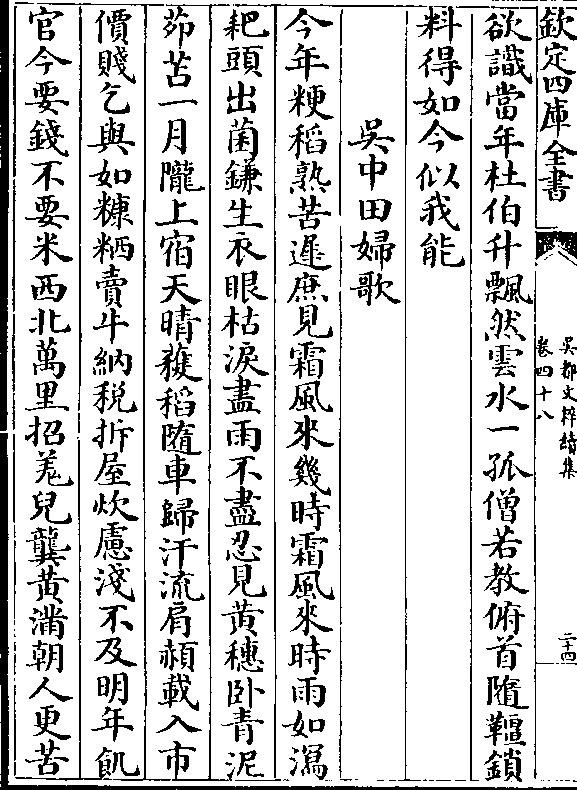 欽定四庫全書
吳都文粹續集
卷四十八
二十四
欲識當年杜伯升飄然雲水一孤僧若教俯首隨韁鎖
料得如今似我能
吳中田婦歌
今年粳稻熟苦遲庶見霜風來幾時霜風來時雨如瀉
耙頭出菌鎌生衣眼枯淚盡雨不盡忍見黃穗卧青泥
茆苫一月隴上宿天晴穫稻隨車歸汗流肩赬載入市
價賤乞與如糠粞賣牛納税拆屋炊慮淺不及明年飢
官今要錢不要米西北萬里招羗兒龔黃滿朝人更苦